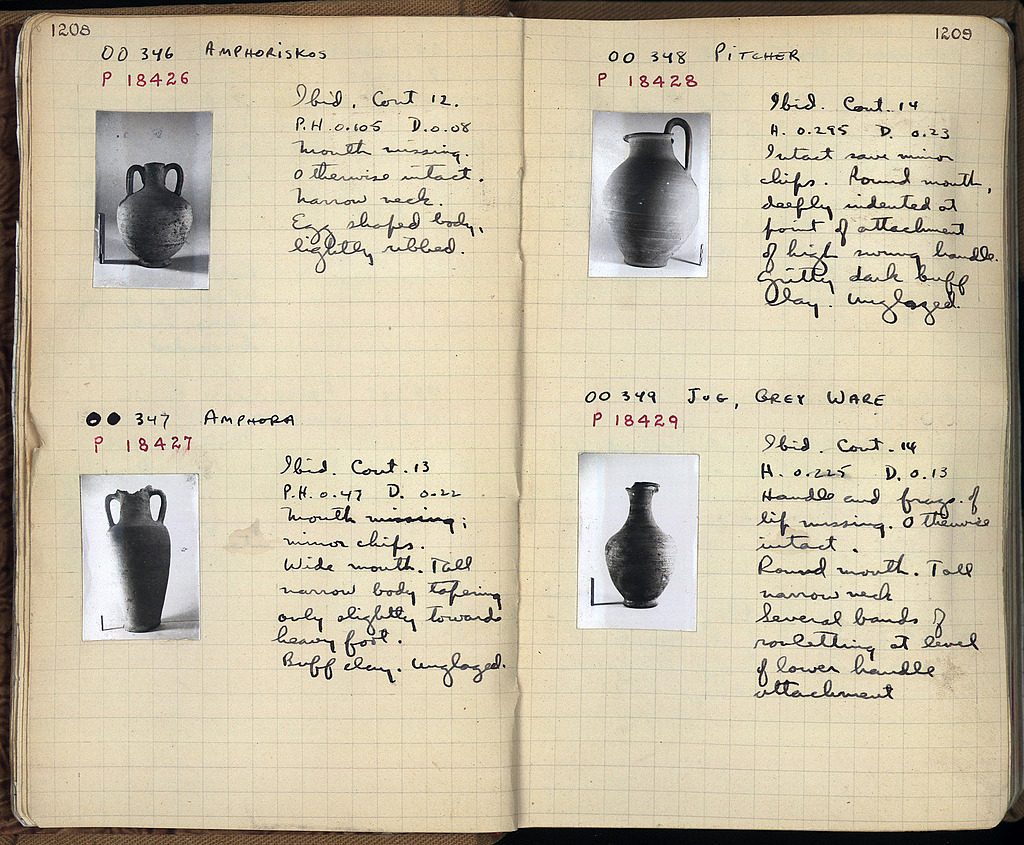 1208
OO 346 AMPHORISKOS
P 18426
Ibid. Cont 12.
P.H. 0.105 D. 0.08
Mouth missing.
Otherwise intact.
Narrow neck.
Egg shaped body,
lightly ribbed.
OO 347 AMPHORA
P 18427
Ibid. Cont. 13
P.H. 0.47 D. 0.22
Mouth missing;
minor chips.
Wide mouth. Tall
narrow body tapering
only slightly towards
heavy foot.
Buff clay. Unglazed.
1209
OO 348 PITCHER
P 18428
Ibid. Cont. 14
H. 0.295 D. 0.23
Intact save minor
chips. Round mouth,
deeply indented at
point of attachment
of high swung handle.
Gritty dark buff
clay. Unglazed.
OO 349 JUG, GREY WARE
P 18429
Ibid. Cont. 14
H. 0.225 D. 0.13
Handle and frags. of
lip missing. Otherwise
intact.
Round mouth. Tall
narrow neck
Several bands of
rouletting at level
of lower handle
attachment